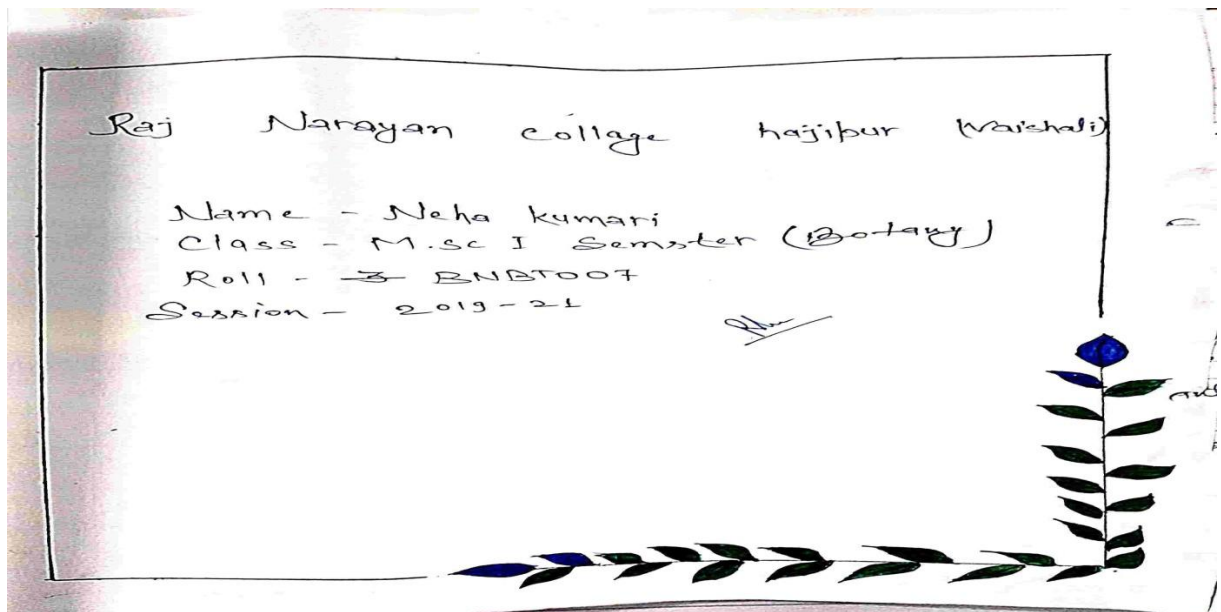 Raj Narayan collage hajipur (Vaishali)
Name - Neha kumari
Class - M.sc I Semster (Botany)
Roll - BNBT007
Session - 2019-21